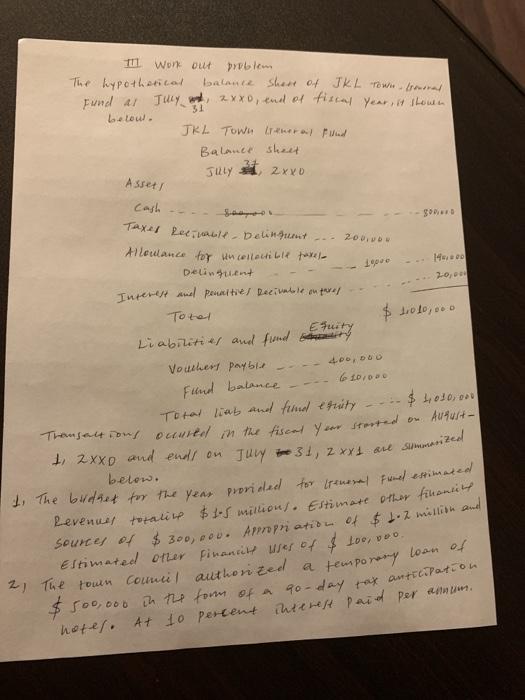 III Work out problem
The hypothetical balance sheet of JKL Town - General
Fund as July 31, 2xx0, end of fiscal year, it shown
below.
JKL Town General Fund
Balance sheet
July 31, 2xx0
Assets
Cash ---- 800,000
Taxes Receivable - Delinquent --- 200,000
Allowance for uncollectible taxes-
Delinquent - - - 10,000 --- 190,000
Interest and Penalties Receivable on taxes --- 20,000
Total $ 1,010,000
Liabilities and fund Equity
Vouchers payble ---- 400,000
Fund balance ---- 610,000
Total liab and fund equity ---- $ 1,010,000
Transactions occured in the fiscal year started on August-
1, 2xx0 and ends on July 31, 2xx1 are summarized
below.
1, The budget for the year provided for General Fund estimated
Revenues totaling $1.5 millions. Estimate other financing
sources of $300,000. Appropriation of $1.2 million and
Estimated other Financing uses of $100,000.
2, The town council authorized a temporary loan of
$500,000 in the form of a 90-day tax anticipation
notes. At 10 percent interest paid per annum.